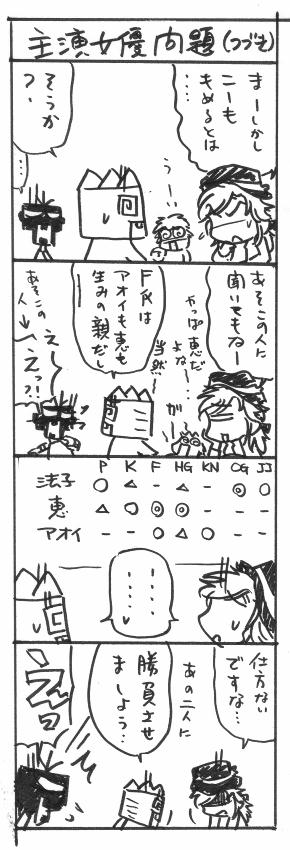 主演女優問題(つづき)
まーしかし
こーも
もめるとは
・・・・
うーい
そうか
?、
・・・
あそこの人に
聞いてもねー
やっぱ恵だ
よなー・・
当然
がー
F氏は
アオイも恵も
生みの親だし
えー
えっ?!
あそこの
人→
P K F HG KN OG JJ
法子 ○ △ - △ - ◎ ○
恵 △ ○ ◎ ◎ - - -
アオイ - - ○ △ ○ - -
・・・・
・・・・
仕方ない
ですな…
あの二人に
勝負させ
ましょう…
えっ